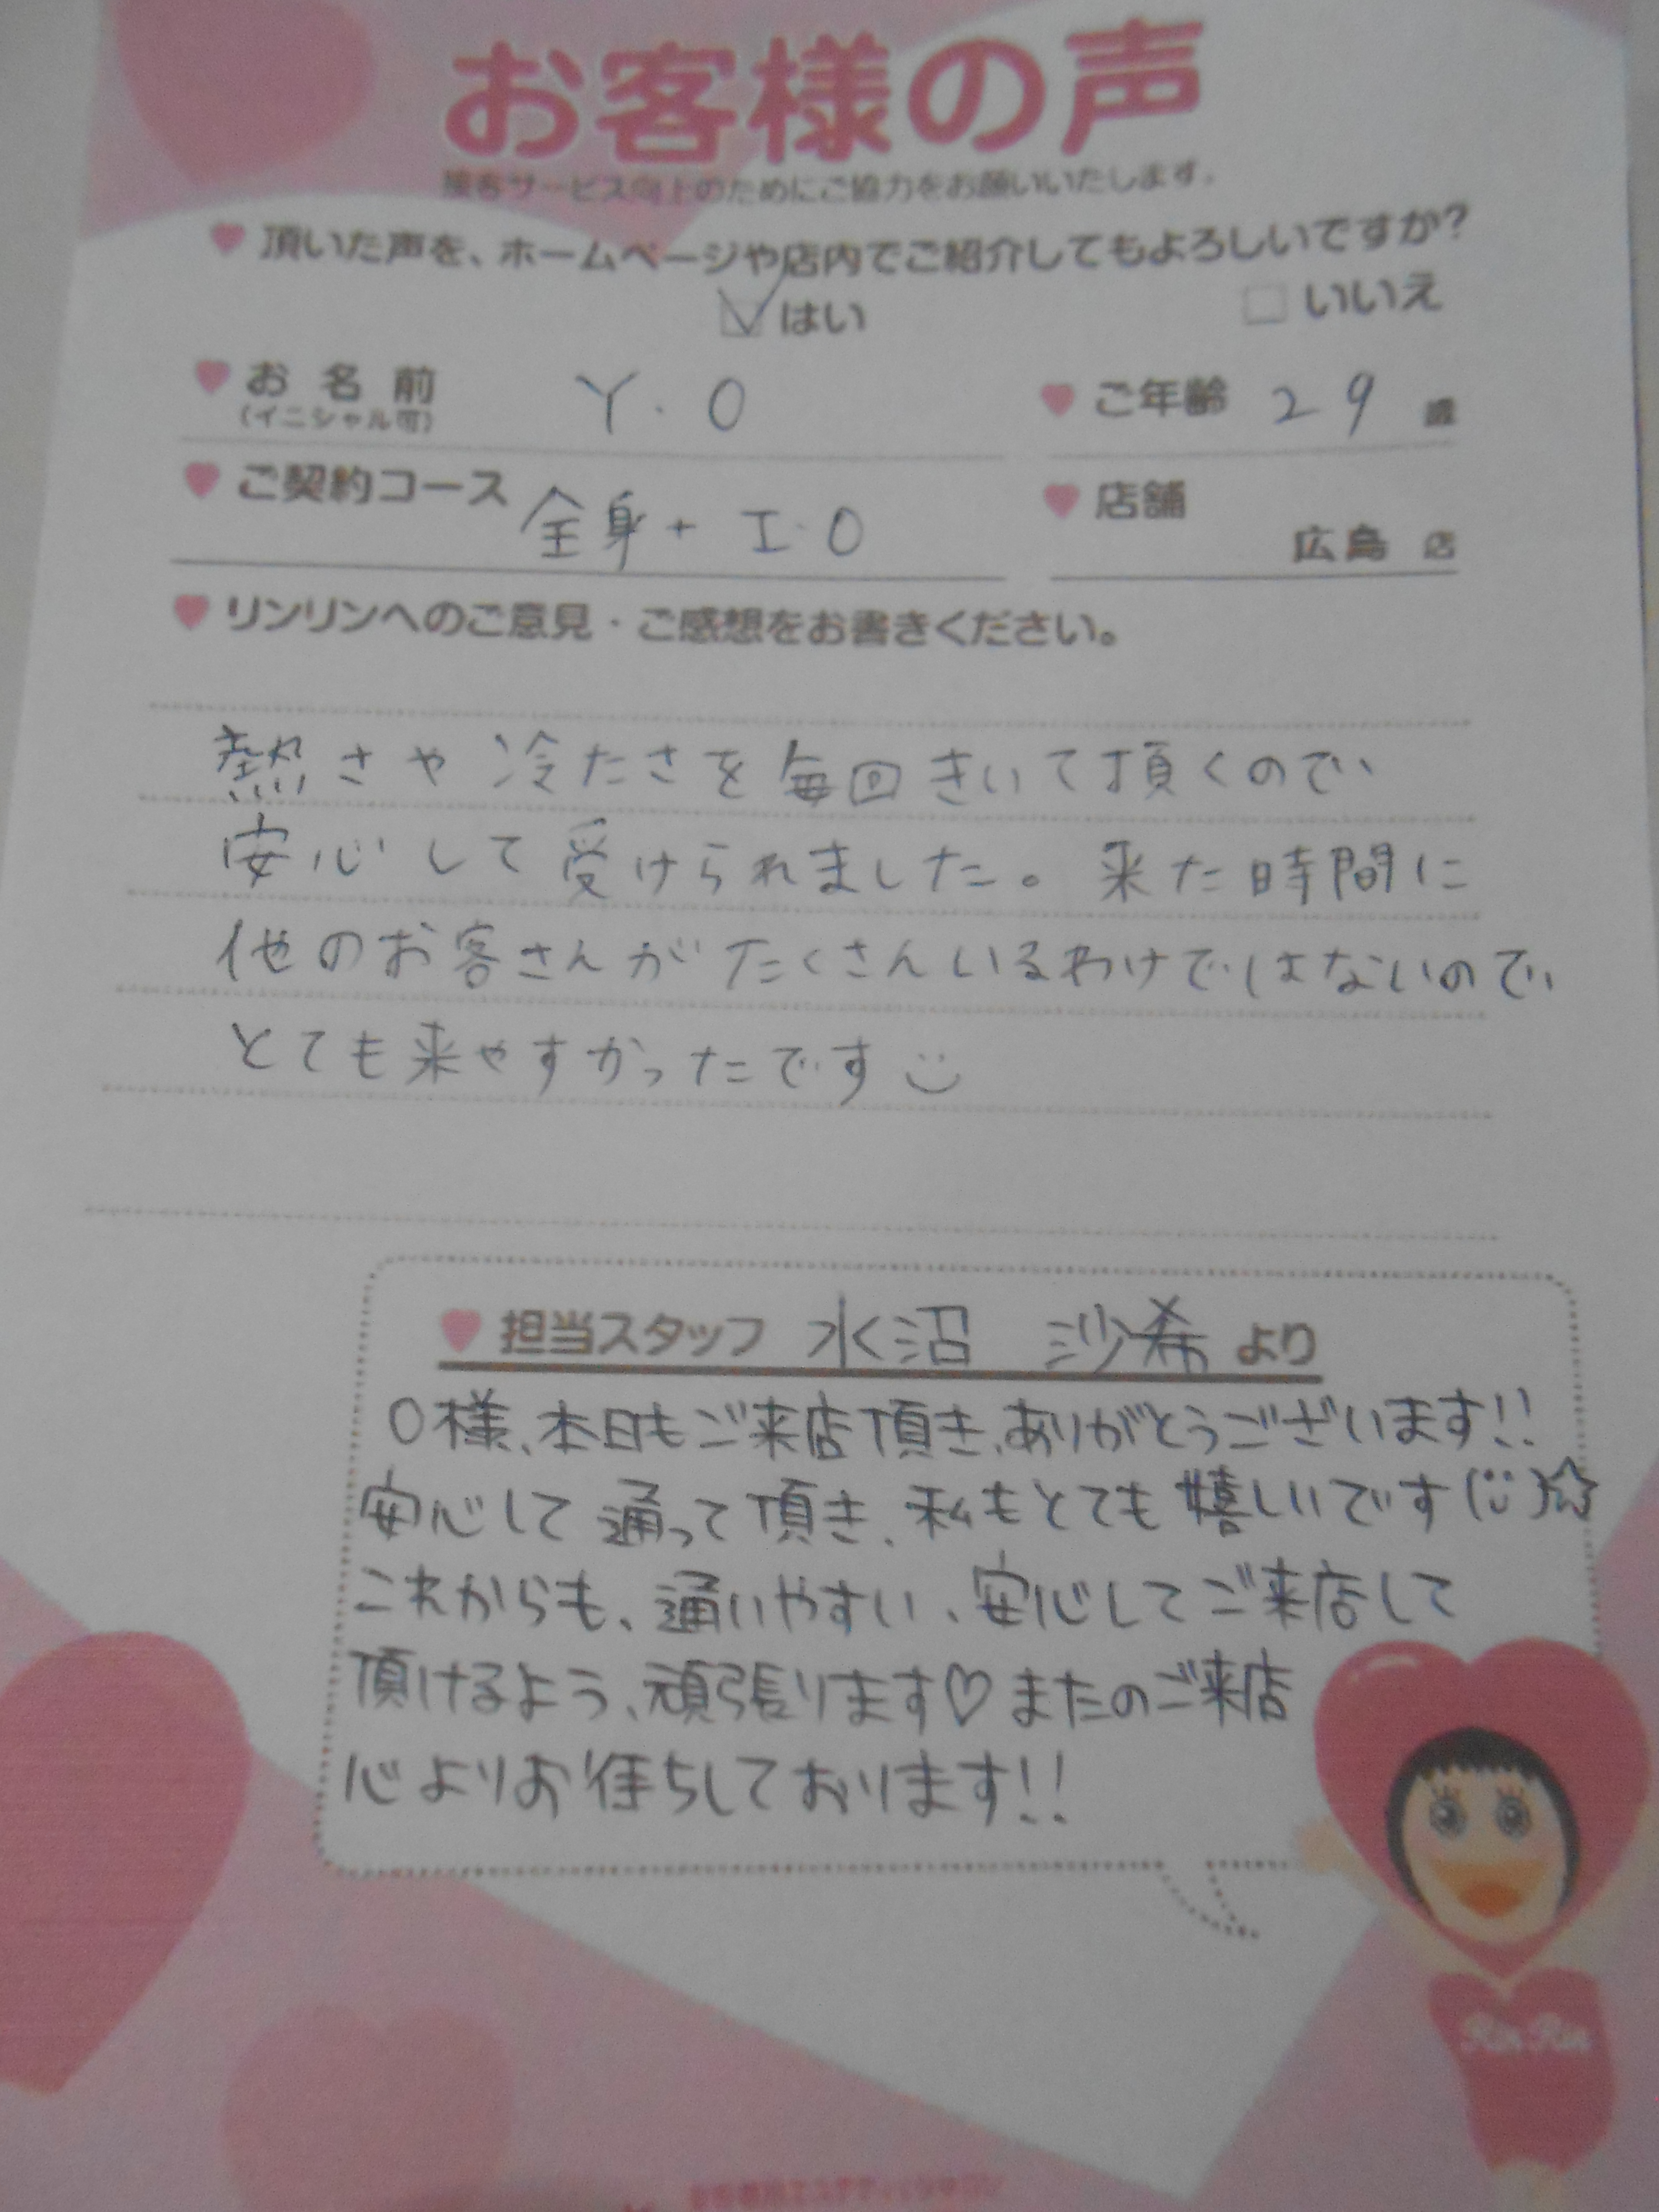 お客様の声
接客サービス向上のためにご協力をお願いいたします。
頂いた声を、ホームページや店内でご紹介してもよろしいですか?
はい いいえ
お名前 Y.O ご年齢 29 歳
(イニシャル可)
ご契約コース 全身+I.O 店舗 広島 店
リンリンへのご意見・ご感想をお書きください。
熱さや冷たさを毎回きいて頂くので、
安心して受けられました。来た時間に
他のお客さんがたくさんいるわけではないので、
とても来やすかったです
担当スタッフ 水沼 沙希 より
O様、本日もご来店頂き、ありがとうございます!!
安心して通って頂き、私もとても嬉しいです
これからも、通いやすい、安心してご来店して
頂けるよう、頑張ります♡またのご来店
心よりお待ちしております!!
Rin Rin